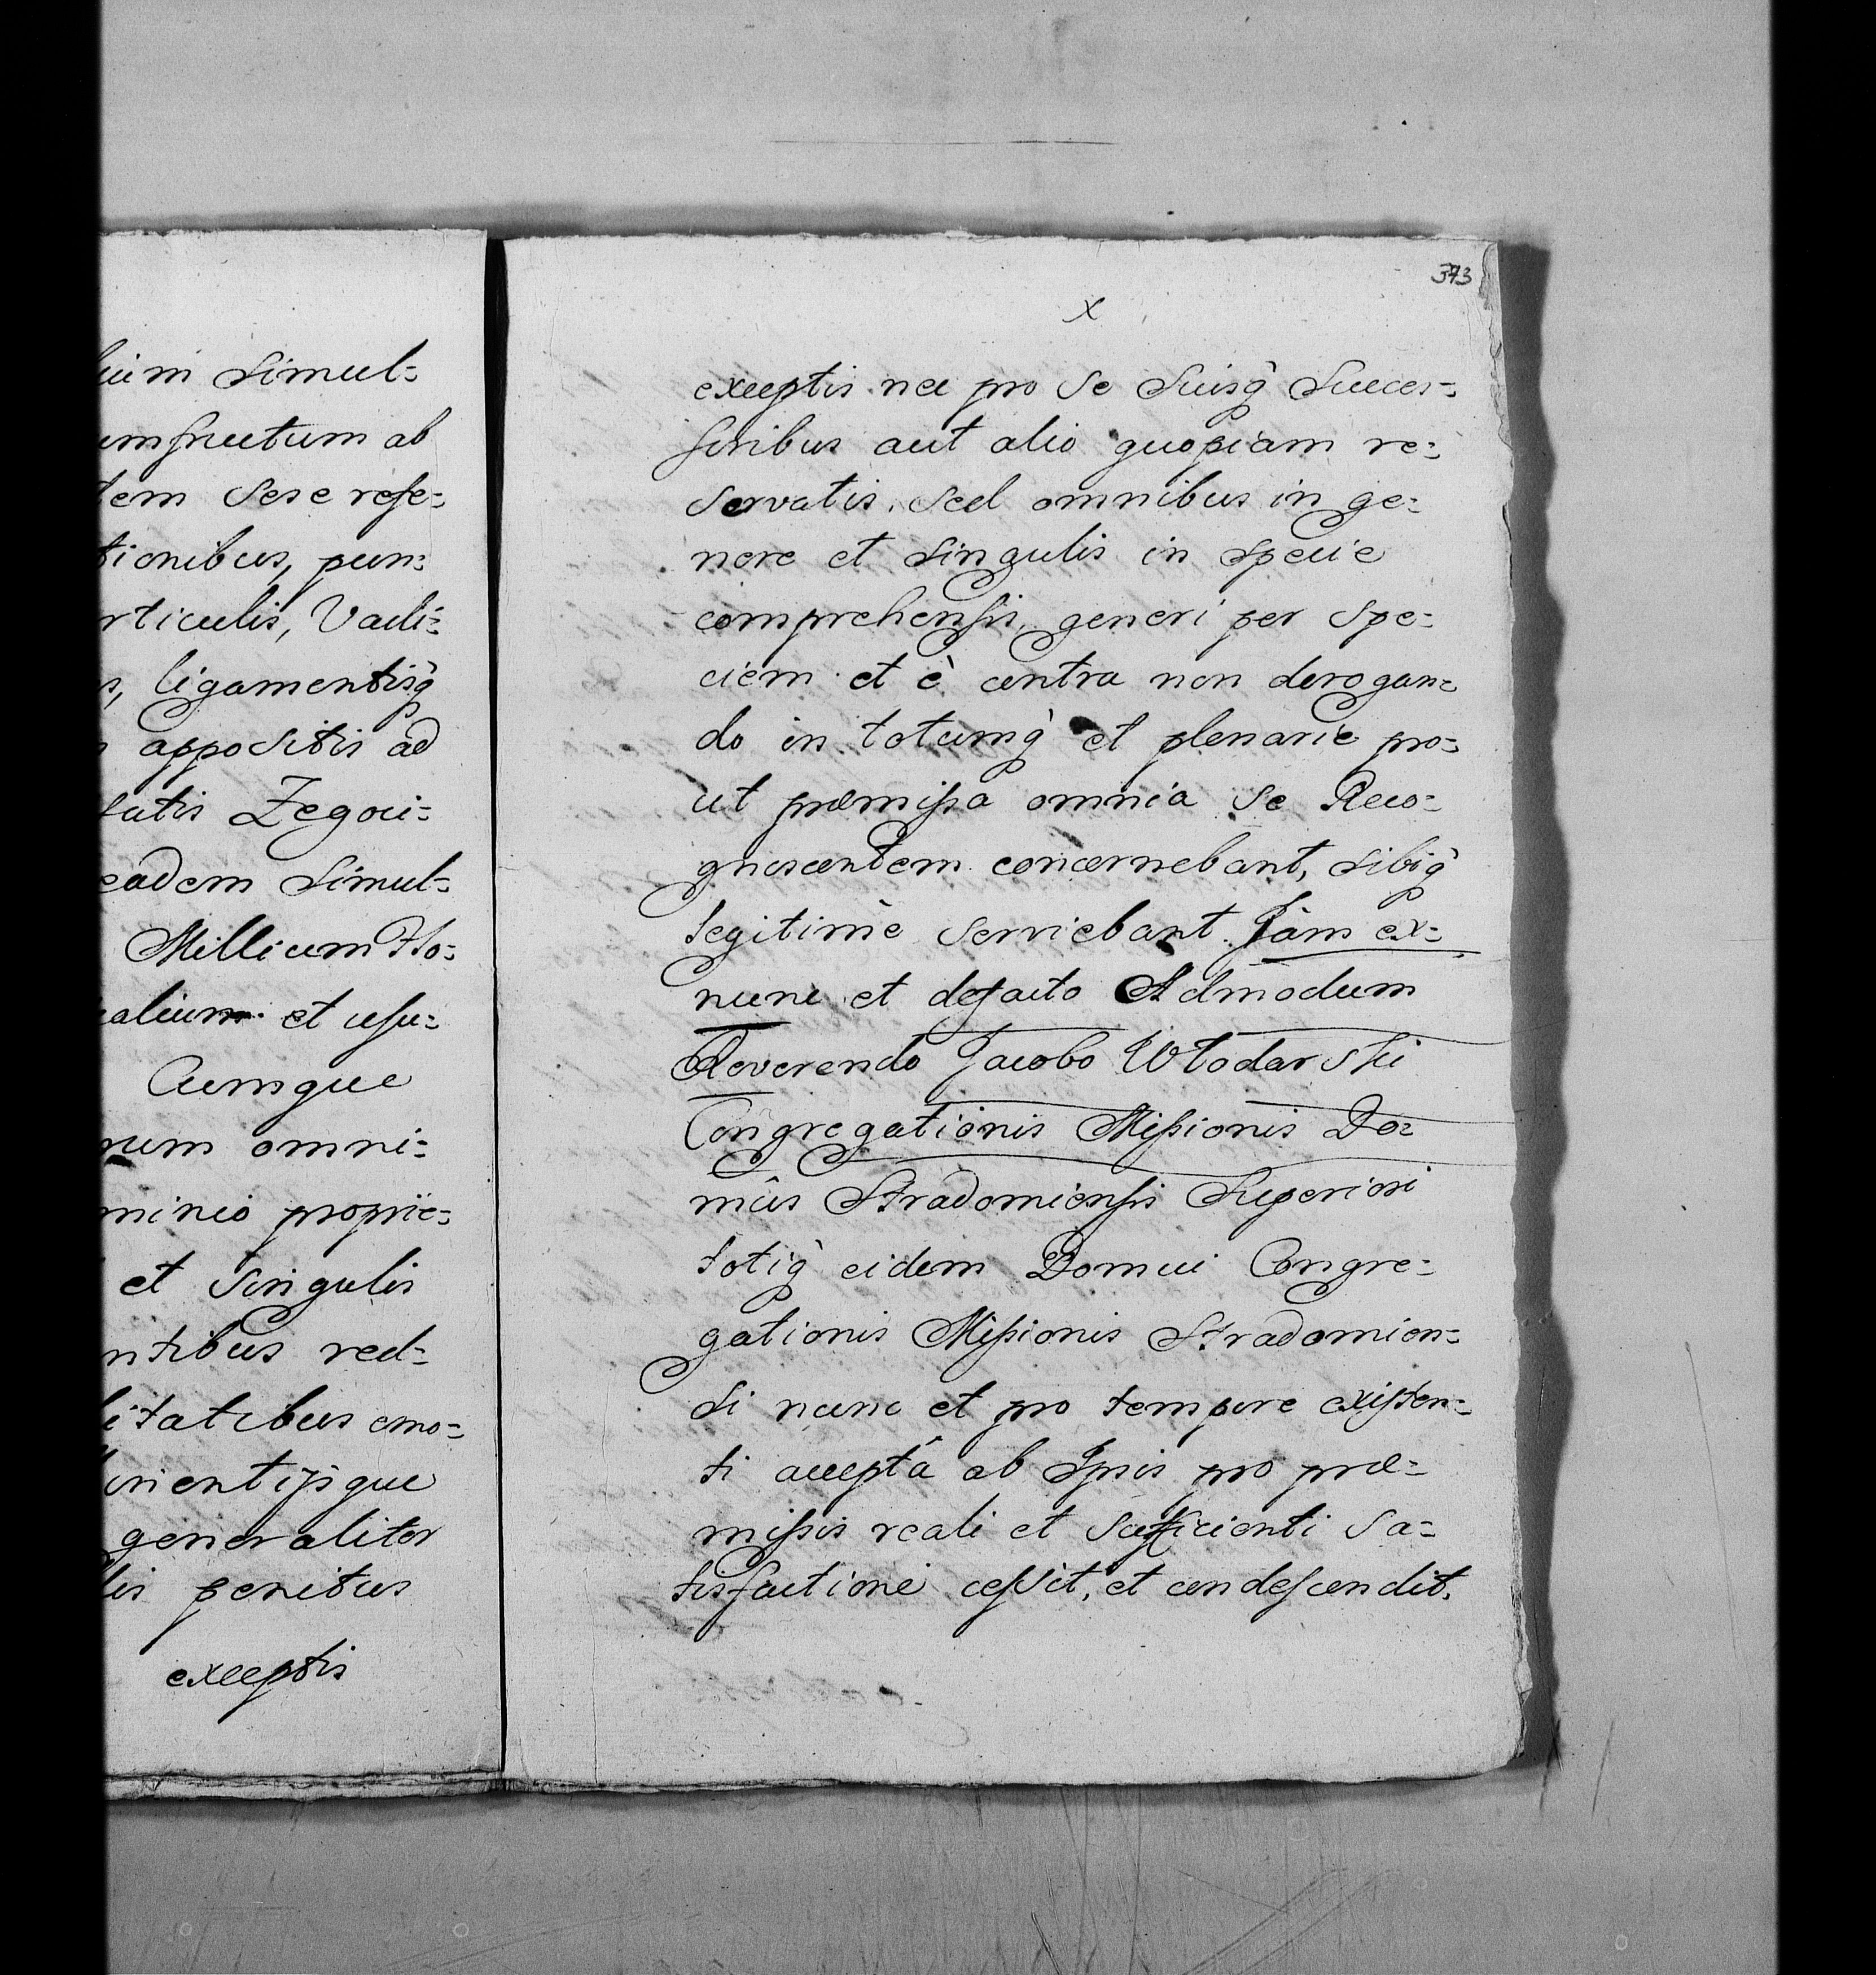 lium simul=
umfructum ab
tem sese refe=
tionibus, pun=
rticulis, Vadi=
s, ligamentisq̀
appositis ad
tatis Zegoci=
eadem simul=
Millium Flo=
ualium et usu=
Cumque
rum omni=
minio proprie=
et singulis
ntibus red=
litatibus emo=
venientijsque
generaliter
lis penitus
exceptis
373
x
exceptis nec pro se Suisq̀ Succes=
soribus aut alio quopiam re=
servatis, sed omnibus in ge=
nere et singulis in specie
comprehensis, generi per spe=
ciem et è contra non derogan=
do in totumq̀ et plenarie pro=
ut præmissa omnia se Reco=
gnoscentem concernebant, sibiq̀
legitimè serviebant. Jàm ex=
nunc et defacto Admodum
Reverendo Jacobo Włodarski
Congregationis Missionis Do=
mûs Stradomiensis Superiori
totiq̀ eidem Domui Congre=
gationis Missionis Stradomien=
si nunc et pro tempore existen=
ti acceptâ ab Ipsis pro præ=
missis reali et sufficienti sa=
tisfactione cessit, et condescendit.